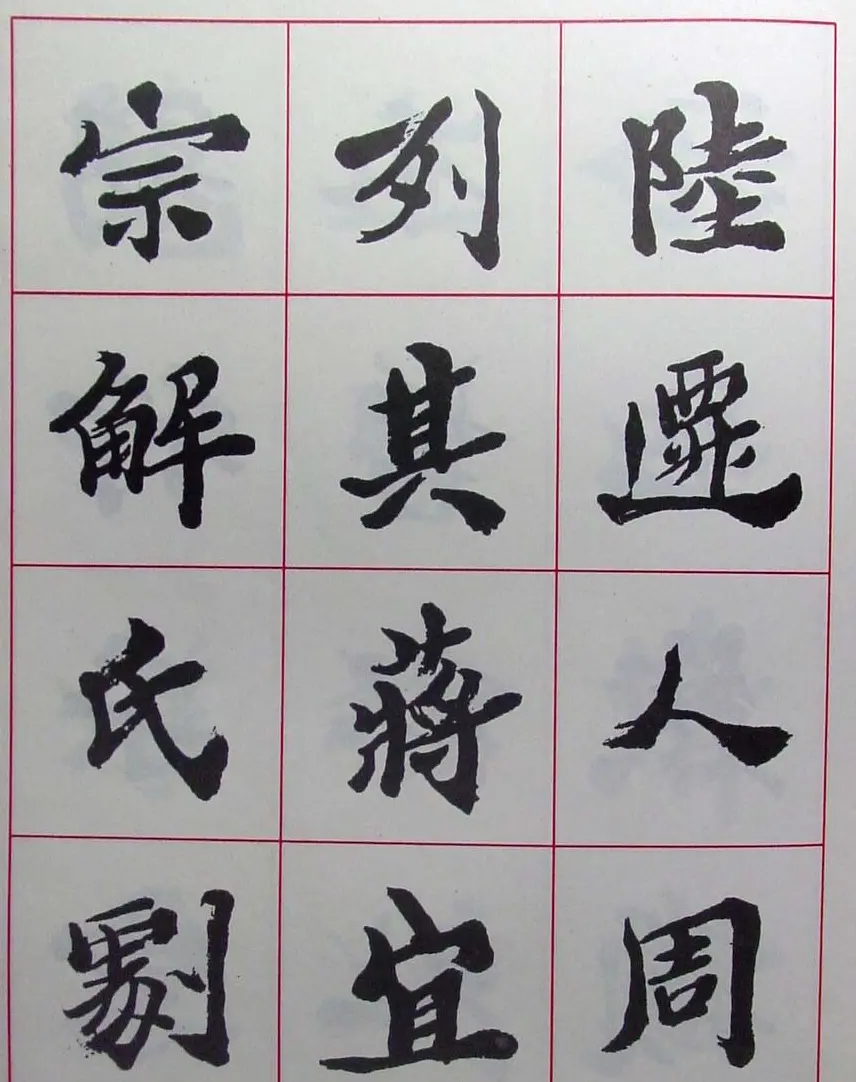 陸遷人周
列其蔣宜
宗解氏劇